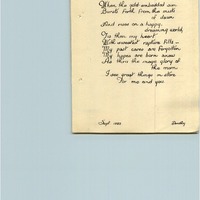 When the gold embedded sun
Bursts forth from the mists
of dawn
And rose on a happy,
dreaming world,
'Tis then my heart
With sweetest rapture fills —
My past cares are forgotten
My hopes are born anew
As thro the magic glory of
the morn
I see great things in store
For me and you.
Sept
Dorothy